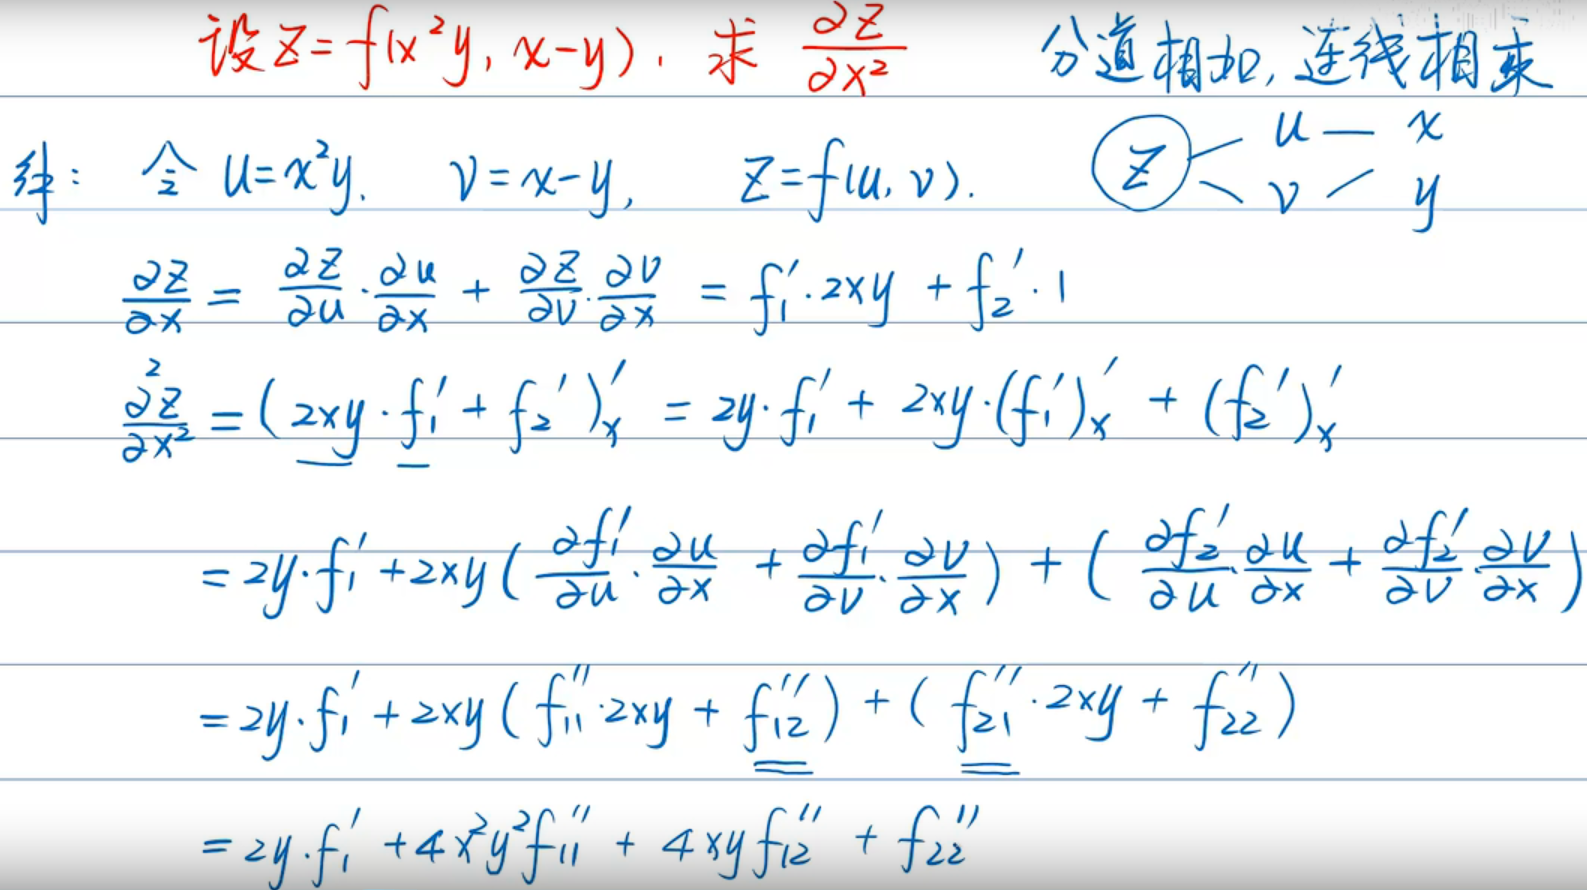 设z=f(x²y, x-y). 求 ∂z/∂x² 分道相加, 连线相乘
解: 令 u=x²y. v=x-y, z=f(u, v). z u — x
v y
∂z/∂x = ∂z/∂u · ∂u/∂x + ∂z/∂v · ∂v/∂x = f₁′·2xy + f₂′·1
∂²z/∂x² = (2xy·f₁′ + f₂′)′ₓ = 2y·f₁′ + 2xy·(f₁′)′ₓ + (f₂′)′ₓ
= 2y·f₁′ + 2xy( ∂f₁′/∂u · ∂u/∂x + ∂f₁′/∂v · ∂v/∂x ) + ( ∂f₂′/∂u · ∂u/∂x + ∂f₂′/∂v · ∂v/∂x )
= 2y·f₁′ + 2xy( f₁₁″·2xy + f₁₂″ ) + ( f₂₁″·2xy + f₂₂″ )
= 2y·f₁′ + 4x²y²f₁₁″ + 4xyf₁₂″ + f₂₂″